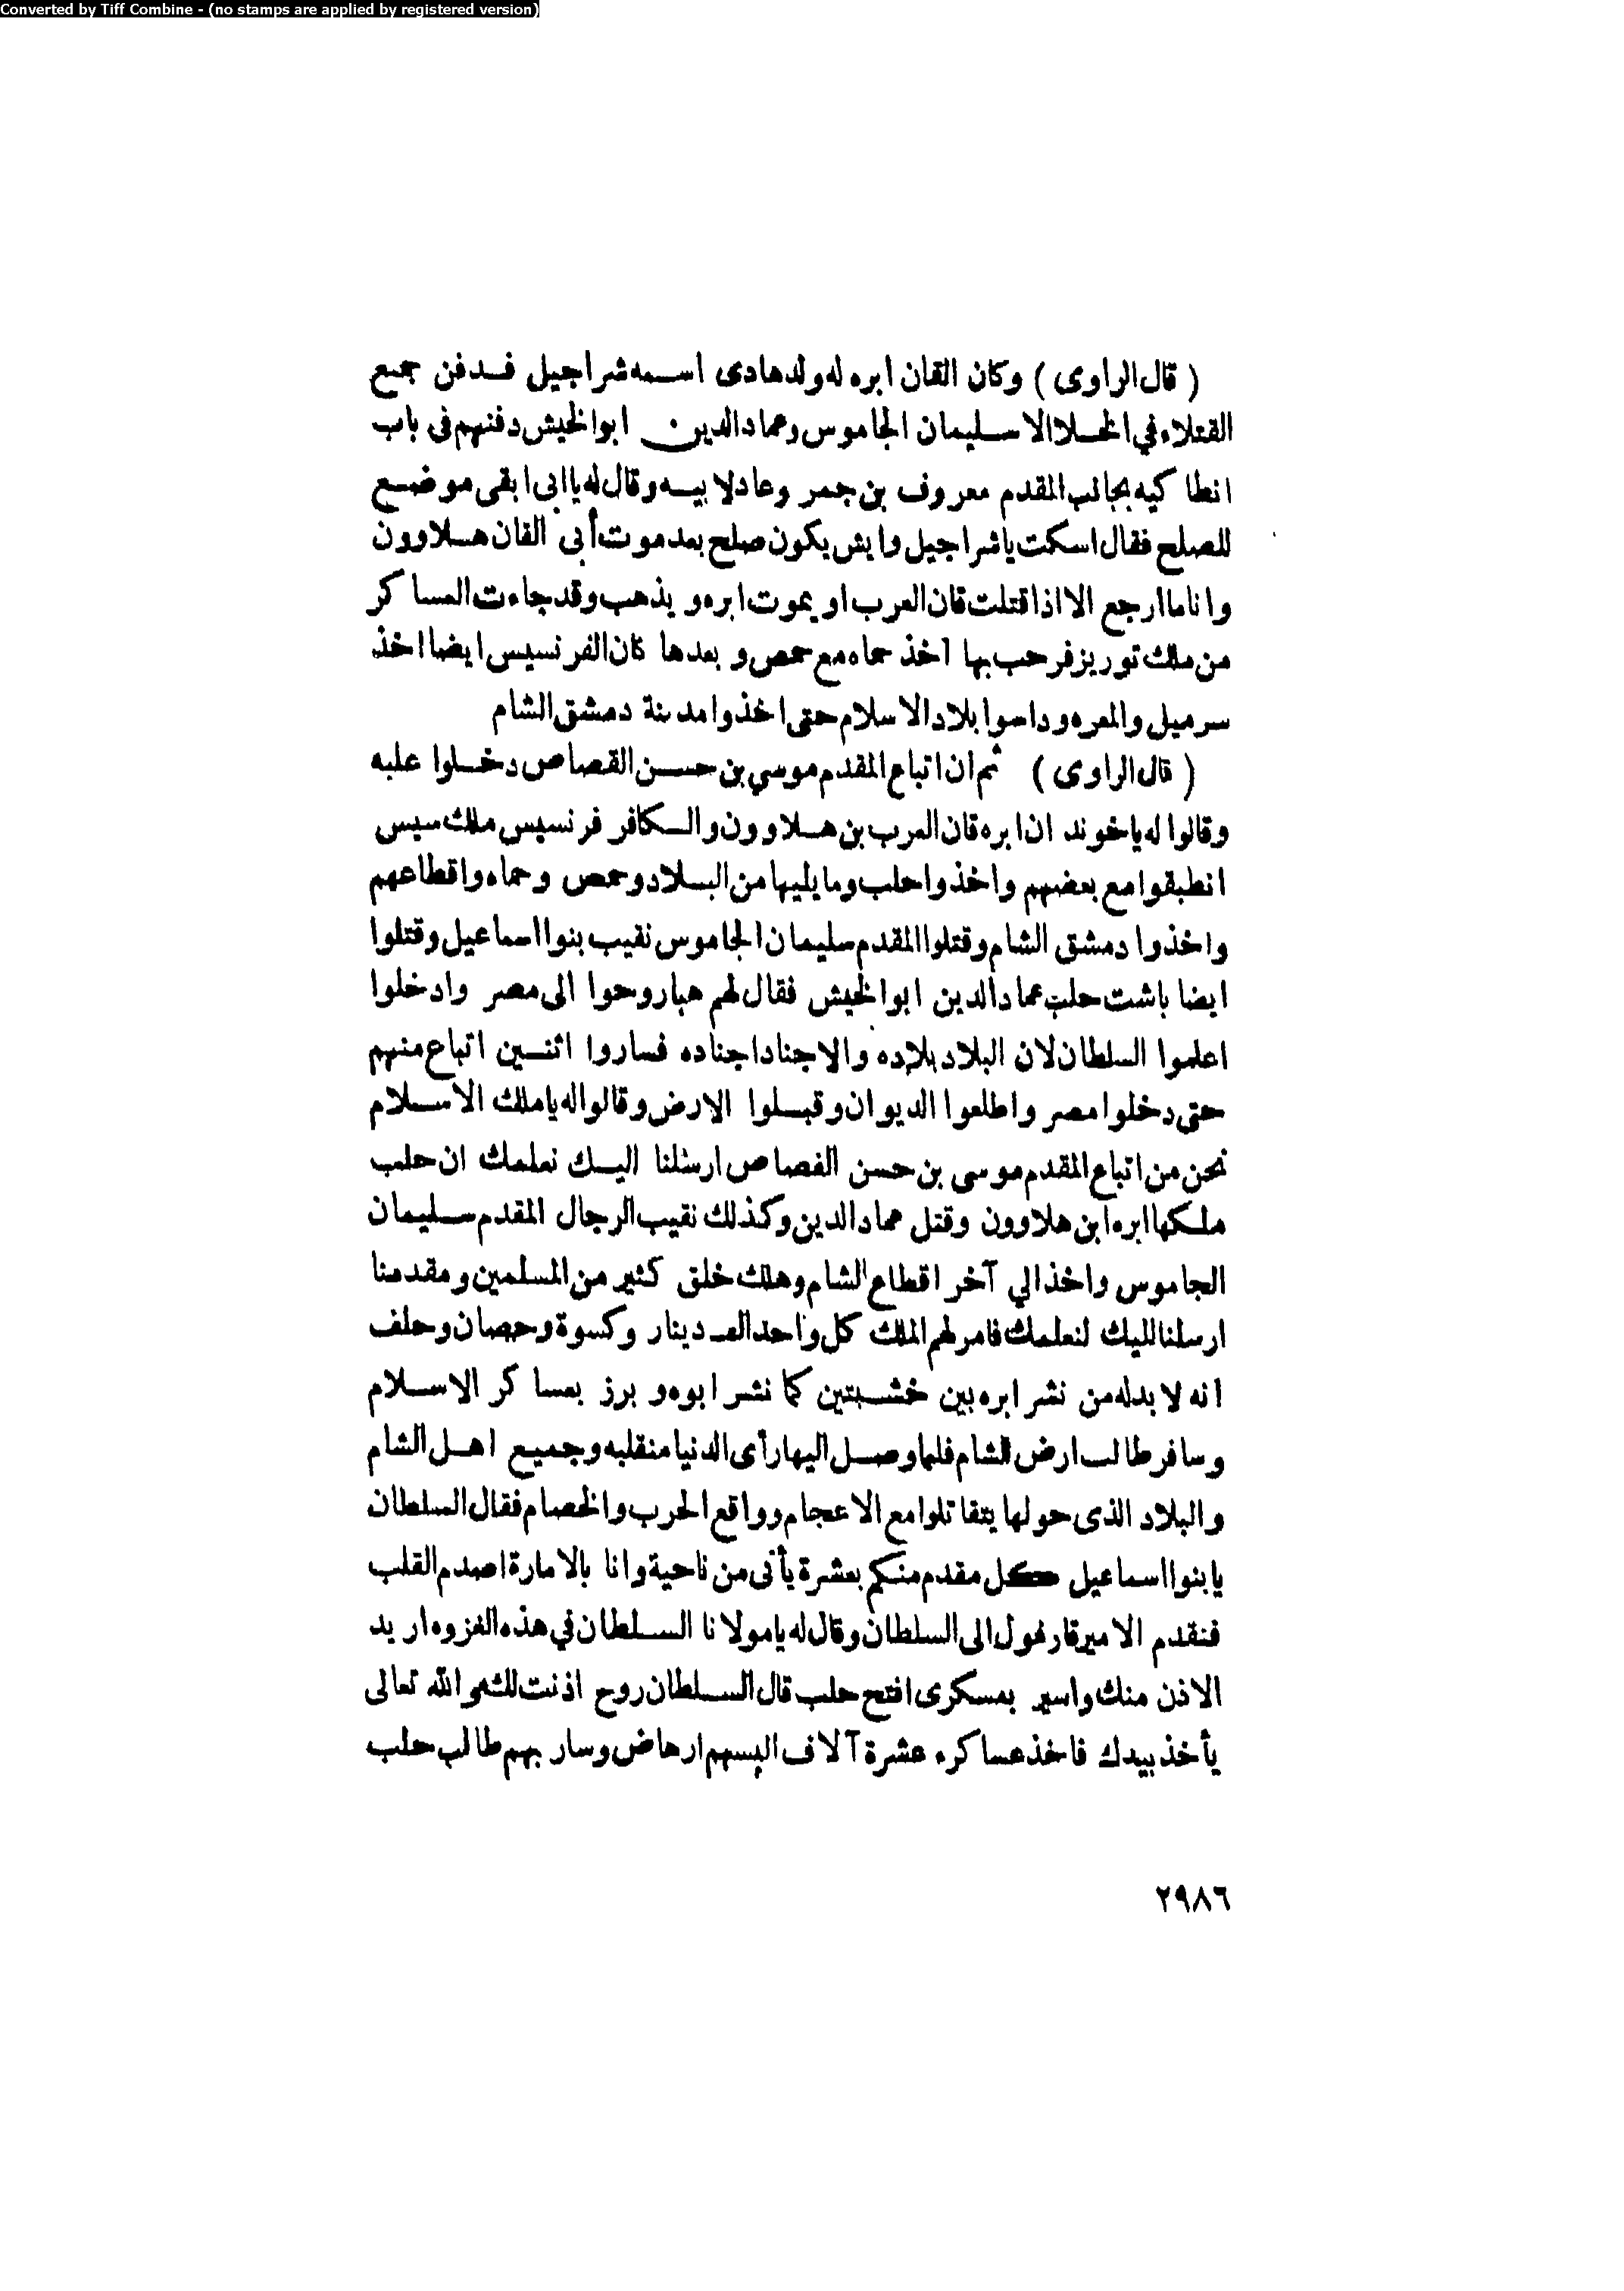 Converted by Tiff Combine - (no stamps are applied by registered version)
( قال الراوى ) وكان القان ابره له ولد هادى اسمه شراجيل فدفن جميع
القتلاء في الخلا الا سليمان الجاموس وعماد الدين ابوا لخيش دفنهم فى باب
انطاكيه بجانب المقدم معروف بن جمر وعاد لابيه وقال له يا ابى ابقى موضع
للصلح فقال اسكت يا شراجيل وايش يكون صلح بعد موت أبى القان هلاوون
وانا ما ارجع الا اذا قتلت قان العرب او يموت ابره ويذهب وقد جاءت العساكر
من ملك توريز فرحب بها اخذ حماه مع حمص وبعدها كان الفرنسيس ايضا اخذ
سرميل والمعره وداسوا بلاد الاسلام حتى اخذوا مدينة دمشق الشام
( قال الراوى ) ثم ان اتباع المقدم موسي بن حسن القصاص دخلوا عليه
وقالوا له ياخوند ان ابره قان العرب بن هلاوون والكافر فرنسيس ملك سيس
انطبقوا مع بعضهم واخذوا حلب وما يليها من البلاد وحمص وحماه واقطاعهم
واخذوا دمشق الشام وقتلوا المقدم سليمان الجاموس نقيب بنوا اسماعيل وقتلوا
ايضا باشت حلب عماد الدين ابوا لخيش فقال لهم هيا روحوا الى مصر وادخلوا
اعلموا السلطان لان البلاد بلاده والاجناد اجناده فساروا اثنين اتباع منهم
حتى دخلوا مصر واطلعوا الديوان وقبلوا الارض وقالوا له ياملك الاسلام
نحن من اتباع المقدم موسى بن حسن القصاص ارسلنا اليك نعلمك ان حلب
ملكها ابره ابن هلاوون وقتل عماد الدين وكذلك نقيب الرجال المقدم سليمان
الجاموس واخذ الي آخر اقطاع الشام وهلك خلق كثير من المسلمين ومقدمنا
ارسلنا لليك لنعلمك فامر لهم الملك كل واحد الف دينار وكسوة وحصان وحلف
انه لا بد له من نشر ابره بين خشبتين كما نشر ابوه وبرز بعساكر الاسلام
وسافر طالب ارض الشام فلما وصل اليها رأى الدنيا منقلبه وجميع اهل الشام
والبلاد الذى حولها يتقاتلوا مع الاعجام وواقع الحرب والخصام فقال السلطان
يابنوا اسماعيل كل مقدم منكم بعشرة يأتى من ناحية وانا بالامارة اصدم القلب
فتقدم الامير قارغول الى السلطان وقال له يامولانا السلطان في هذه الغزوه اريد
الاذن منك واسير بعسكرى افتح حلب قال السلطان روح اذنت لك هو الله تعالى
يأخذ بيدك فاخذ عساكره عشرة آلاف البسهم ارهاض وسار بهم طالب حلب
٢٩٨٦